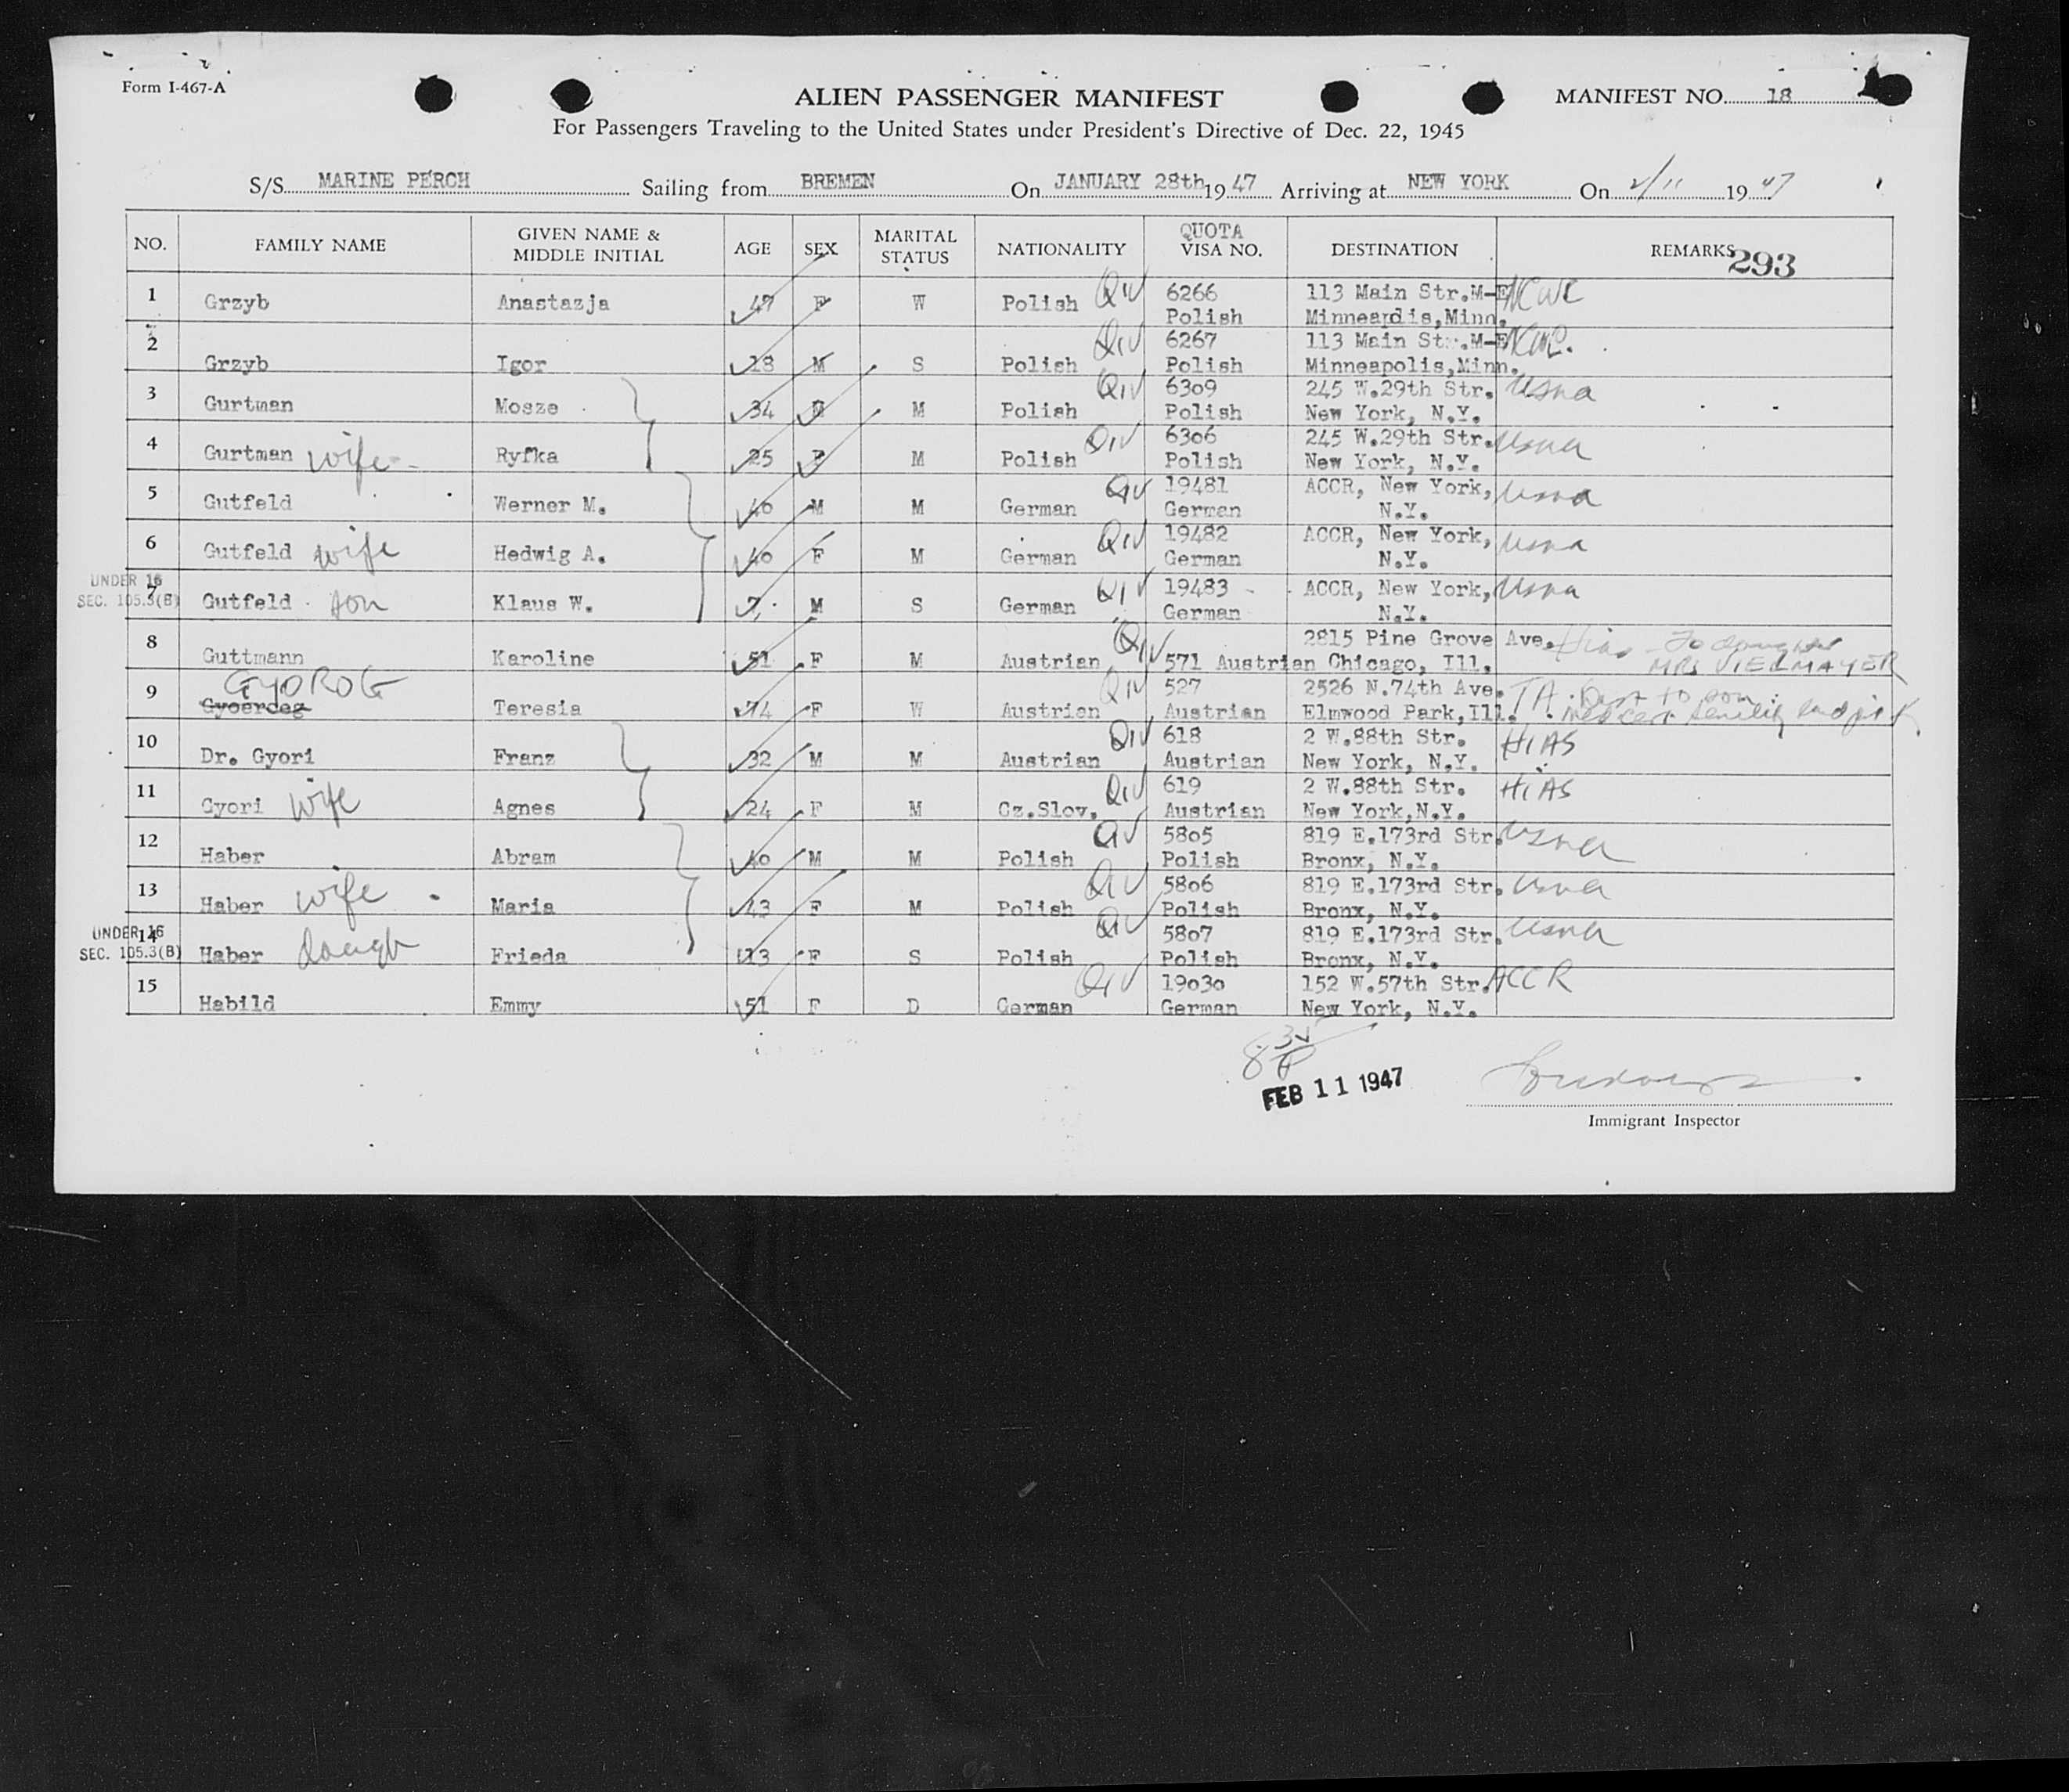 Form I-467-A
ALIEN PASSENGER MANIFEST
MANIFEST NO. 18
For Passengers Traveling to the United States under President's Directive of Dec. 22, 1945
S/S MARINE PERCH Sailing from BREMEN On JANUARY 28th 19 47 Arriving at NEW YORK On 2/11 19 47
NO. FAMILY NAME GIVEN NAME & MIDDLE INITIAL AGE SEX MARITAL STATUS NATIONALITY QUOTA VISA NO. DESTINATION REMARKS 293
1 Grzyb Anastazja 47 F W Polish QIV 6266 Polish 113 Main Str.M-E Minneardis,Minn. NCWC
2 Grzyb Igor 18 M S Polish QIV 6267 Polish 113 Main Str.M-E Minneapolis,Minn. NCWC.
3 Gurtman Mosze 34 M M Polish QIV 6309 Polish 245 W.29th Str. New York, N.Y. usna
4 Gurtman wife Ryfka 25 F M Polish QIV 6306 Polish 245 W.29th Str. New York, N.Y. usna
5 Gutfeld Werner M. 40 M M German QIV 19481 German ACCR, New York, N.Y. usna
6 Gutfeld wife Hedwig A. 40 F M German QIV 19482 German ACCR, New York, N.Y. usna
UNDER 16
SEC. 105.3(B)
7 Gutfeld son Klaus W. 7 M S German QIV 19483 German ACCR, New York, N.Y. usna
8 Guttmann Karoline 51 F M Austrian QIV 571 Austrian 2815 Pine Grove Ave. Chicago, Ill. Hias - To daughter MRS VIELMAYER
GYOROG
9 Gyoerdeg Teresia 74 F W Austrian QIV 527 Austrian 2526 N.74th Ave. Elmwood Park,Ill. TA. to son med cert senility
10 Dr. Gyori Franz 32 M M Austrian QIV 618 Austrian 2 W.88th Str. New York, N.Y. HIAS
11 Gyori wife Agnes 24 F M Cz.Slov. QIV 619 Austrian 2 W.88th Str. New York,N.Y. HIAS
12 Haber Abram 40 M M Polish QIV 5805 Polish 819 E.173rd Str. Bronx, N.Y. usna
13 Haber wife Maria 43 F M Polish QIV 5806 Polish 819 E.173rd Str. Bronx, N.Y. usna
UNDER 16
SEC. 105.3(B)
14 Haber daugh Frieda 13 F S Polish QIV 5807 Polish 819 E.173rd Str. Bronx, N.Y. usna
15 Habild Emmy 51 F D German QIV 19030 German 152 W.57th Str. New York, N.Y. ACCR
FEB 11 1947
Immigrant Inspector